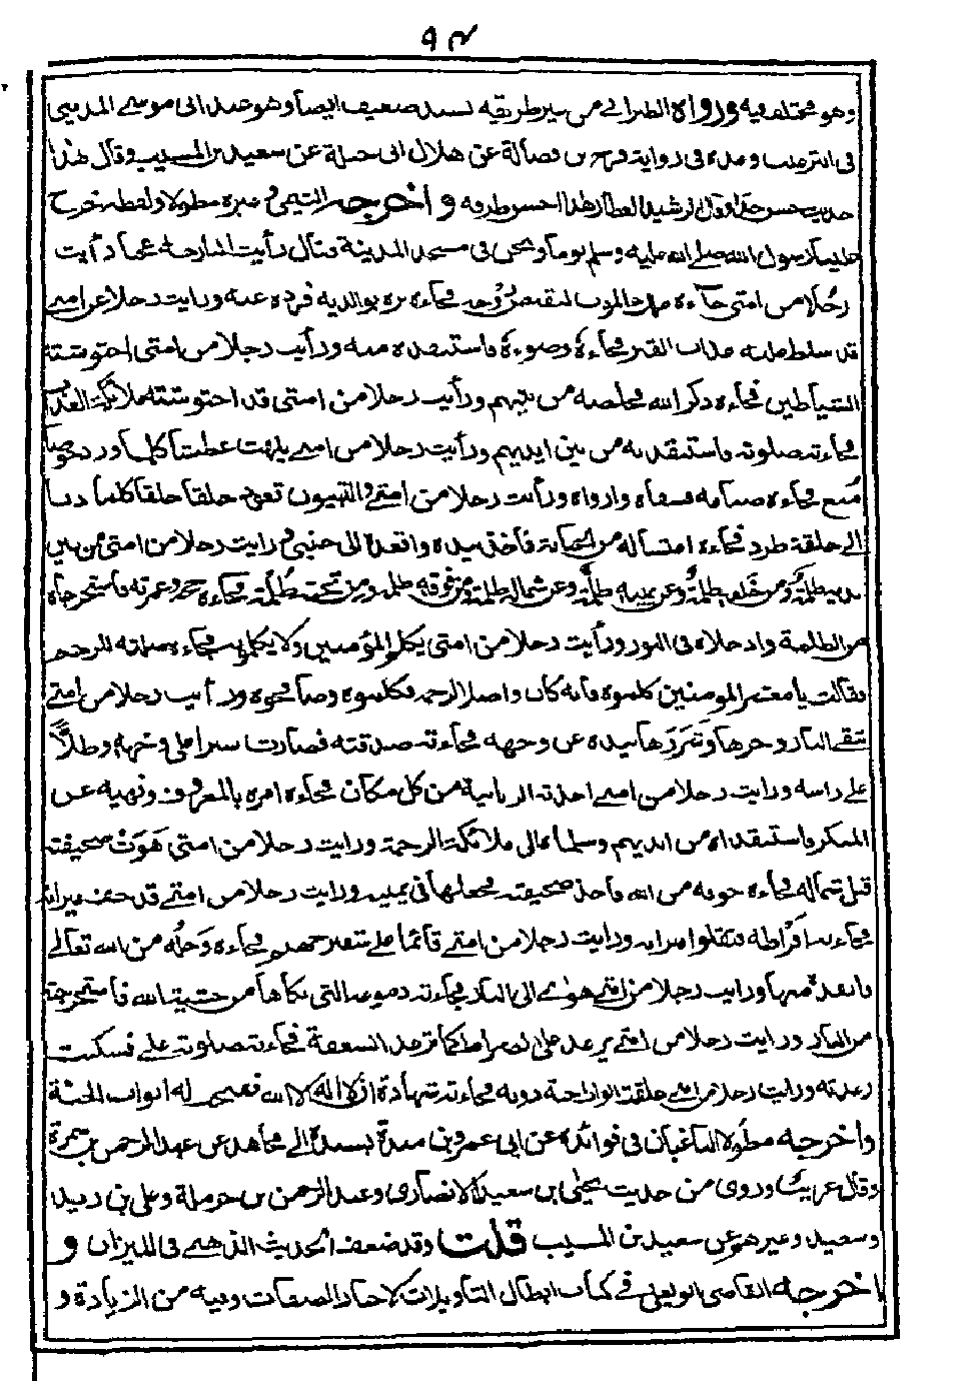 ٩٣
وهو مختلف فيه ورواه الطبراني من غير طريقه بسند ضعيف ايضا وهو عند ابى موسى المديني
فى الترغيب ومده فى رواية فرج بن فضالة عن هلال ابى جبلة عن سعيد بن المسيب وقال هذا
حديث حسن جدا وقال الرشيد العطار هذا احسن طرقه واخرجه التيمى فى مطولا ولفظه خرج
علينا رسول الله صلى الله عليه وسلم يوما ونحن فى مسجد المدينة فقال رأيت البارحة عجبا رأيت
رجُلا من امتى جآءه ملك الموت ليقبض رُوحه فجاءه بره بوالديه فرده عنه ورايت رجلا من امتى
قد سلط عليه عذاب القبر فجاءهُ وضوءهُ فاستنقذه منه ورأيت رجلا من امتى احتوشته
الشياطين فجاءه ذكر الله فخلصه من بينهم ورأيت رجلا من امتى قد احتوشته ملائكة العذاب
فجاءته صلوته فاستنقذته من بين ايديهم ورأيت رجلا من امتى يلهث عطشا كلما ورد حوضا
مُنع فجاءه صيامه فسقاه وارواه ورأيت رجلا من امتى والنبيون قعود حلقا حلقا كلما دنا
الى حلقة طرد فجاءه اغتساله من الجنابة فاخذ بيده واقعده الى جنبى ورايت رجلا من امتى من بين
يديه ظلمةٌ ومن خلفه ظلمةٌ وعن يمينه ظلمةٌ وعن شماله ظلمة من فوقه ظلمة ومن تحته ظُلمة فجاءه حجه وعمرته فاستخرجاه
من الظلمة وادخلاه فى النور ورأيت رجلا من امتى يكلم المؤمنين ولا يكلمونه فجاءه صلته للرحم
فقالت يا معشر المومنين كلموه فانه كان واصلا لرحمه فكلموه وصافحوه ورأيت رجلا من امتى
يتقى النار وحرها وشررها بيده عن وجهه فجاءته صدقته فصارت سترا على وجهه وظلاًّ
على راسه ورايت رجلا من امتى اخذته الزبانية من كل مكان فجاءه امره بالمعروف ونهيه عن
المنكر فاستنقذاه من ايديهم وسلماه الى ملائكة الرحمة ورايت رجلا من امتى هَوَتْ صحيفته
قبل شماله فجاءه خوفه من الله فاخذ صحيفته فجعلها فى يمينه ورايت رجلا من امتى قد خف ميزانه
فجاءته افراطه فثقلوا ميزانه ورايت رجلا من امتى قائما على شفير جهنم فجاءه وَجله من الله تعالى
فانقذه منها ورايت رجلا من امتى هوى الى النار فجاءته دموعه التى بكاها من خشية الله فاستخرجته
من النار ورايت رجلا من امتى يرعد على الصراط كما ترعد السعفة فجاءته صلوته على فسكنت
رعدته ورايت رجلا من امتى غلقت ابواب الجنة دونه فجاءته شهادة ان لا اله الا الله ففتحت له ابواب الجنة
واخرجه مطولا الباغبان فى فوائده عن ابى عمرو بن مندة بسنده الى مجاهد عن عبد الرحمن بن سمرة
وقال غريب وروى من حديث يحيى بن سعيد الانصارى وعبد الرحمن بن حرملة وعلى بن زيد
وسعيد وغيرهم عن سعيد بن المسيب قلت وقد ضعف الحديث الذهبى فى الميزان و
اخرجه القاضى ابو يعلى فى كتاب ابطال التأويلات لاخبار الصفات وفيه من الزيادة و